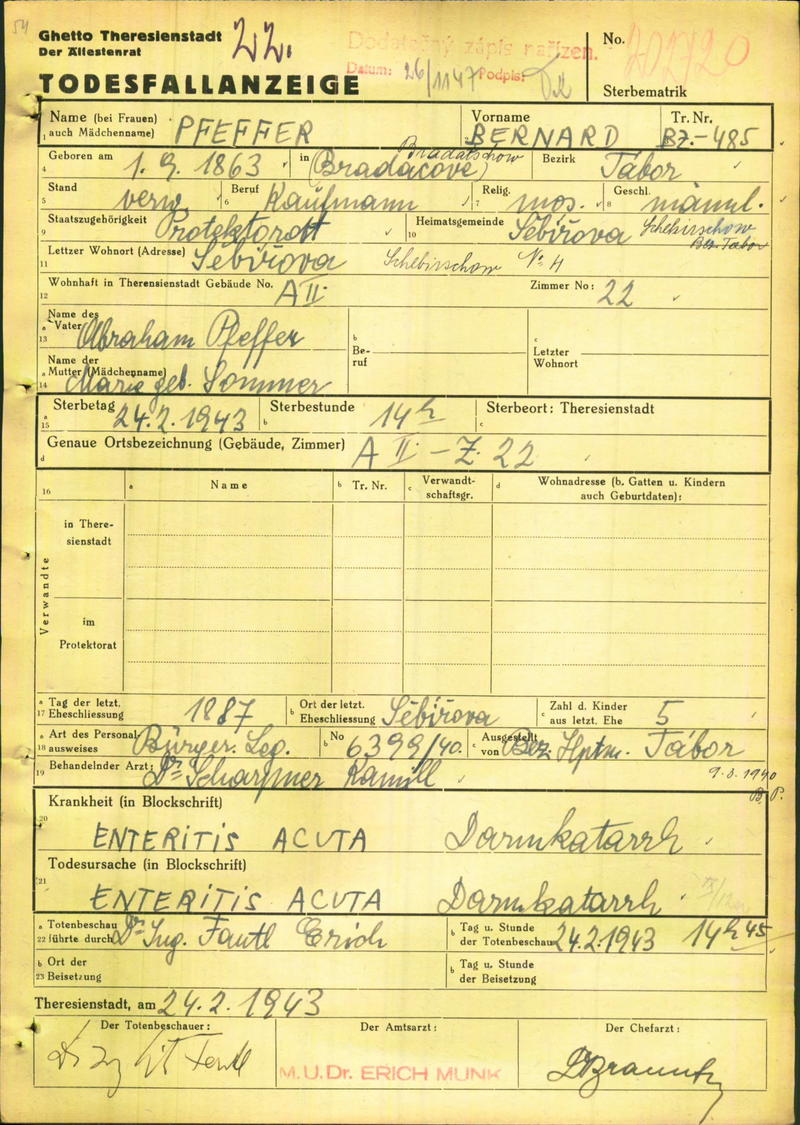 54
Ghetto Theresienstadt
Der Ältestenrat
22.
Dodatečný zápis nařízen.
Datum: 26/1147 Podpis:
No. 202720
TODESFALLANZEIGE
Sterbematrik
Name (bei Frauen) auch Mädchenname) PFEFFER
Vorname BERNARD
Tr. Nr. Bz.-485
Geboren am 1. 9. 1863 in (Bradačově) Bradatschow Bezirk Tábor
Stand verw. Beruf Kaufmann Relig. mos. Geschl. männl.
Staatszugehörigkeit Protektorat Heimatsgemeinde Šebířova Schebirschow Bez. Tabor
Lettzer Wohnort (Adresse) Šebířova Schebirschow No 4
Wohnhaft in Therensienstadt Gebäude No. A II Zimmer No: 22
Name des Vater Abraham Pfeffer
Beruf
Letzter Wohnort
Name der Mutter (Mädchenname) Marie geb. Sommer
Sterbetag 24.2.1943 Sterbestunde 14 h Sterbeort: Theresienstadt
Genaue Ortsbezeichnung (Gebäude, Zimmer) A II - Z. 22
16 a Name b Tr. Nr. c Verwandtschaftsgr. d Wohnadresse (b. Gatten u. Kindern auch Geburtdaten):
Verwandte
in Theresienstadt
im Protektorat
Tag der letzt. Eheschliessung 1887 Ort der letzt. Eheschliessung Šebířova Zahl d. Kinder aus letzt. Ehe 5
Art des Personalausweises Bürger. Leg. No 6399/40. Ausgestellt von Bez. Hptm. Tábor
9.8.1940
Behandelnder Arzt: Dr Kamill
Krankheit (in Blockschrift)
ENTERITIS ACUTA Darmkatarrh
Todesursache (in Blockschrift)
ENTERITIS ACUTA Darmkatarrh
Totenbeschau führte durch Dr Ing. Fantl Erich Tag u. Stunde der Totenbeschau 24.2.1943 14 h 45
Ort der Beisetzung Tag u. Stunde der Beisetzung
Theresienstadt, am 24.2.1943
Der Totenbeschauer: Der Amtsarzt: Der Chefarzt:
M.U.Dr. ERICH MUNK